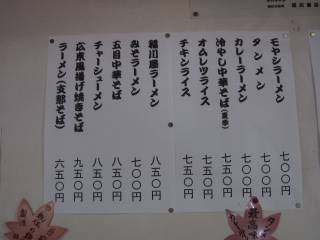 モヤシラーメン 七〇〇円
タンメン 七〇〇円
カレーラーメン 七〇〇円
冷やし中華そば(夏季) 七五〇円
オムレツライス 七五〇円
チキンライス 七五〇円
揚川唐ラーメン 八五〇円
みそラーメン 七〇〇円
五目中華そば 八五〇円
チャーシューメン 八五〇円
広東風揚げ焼きそば 九五〇円
ラーメン(支那そば) 六五〇円